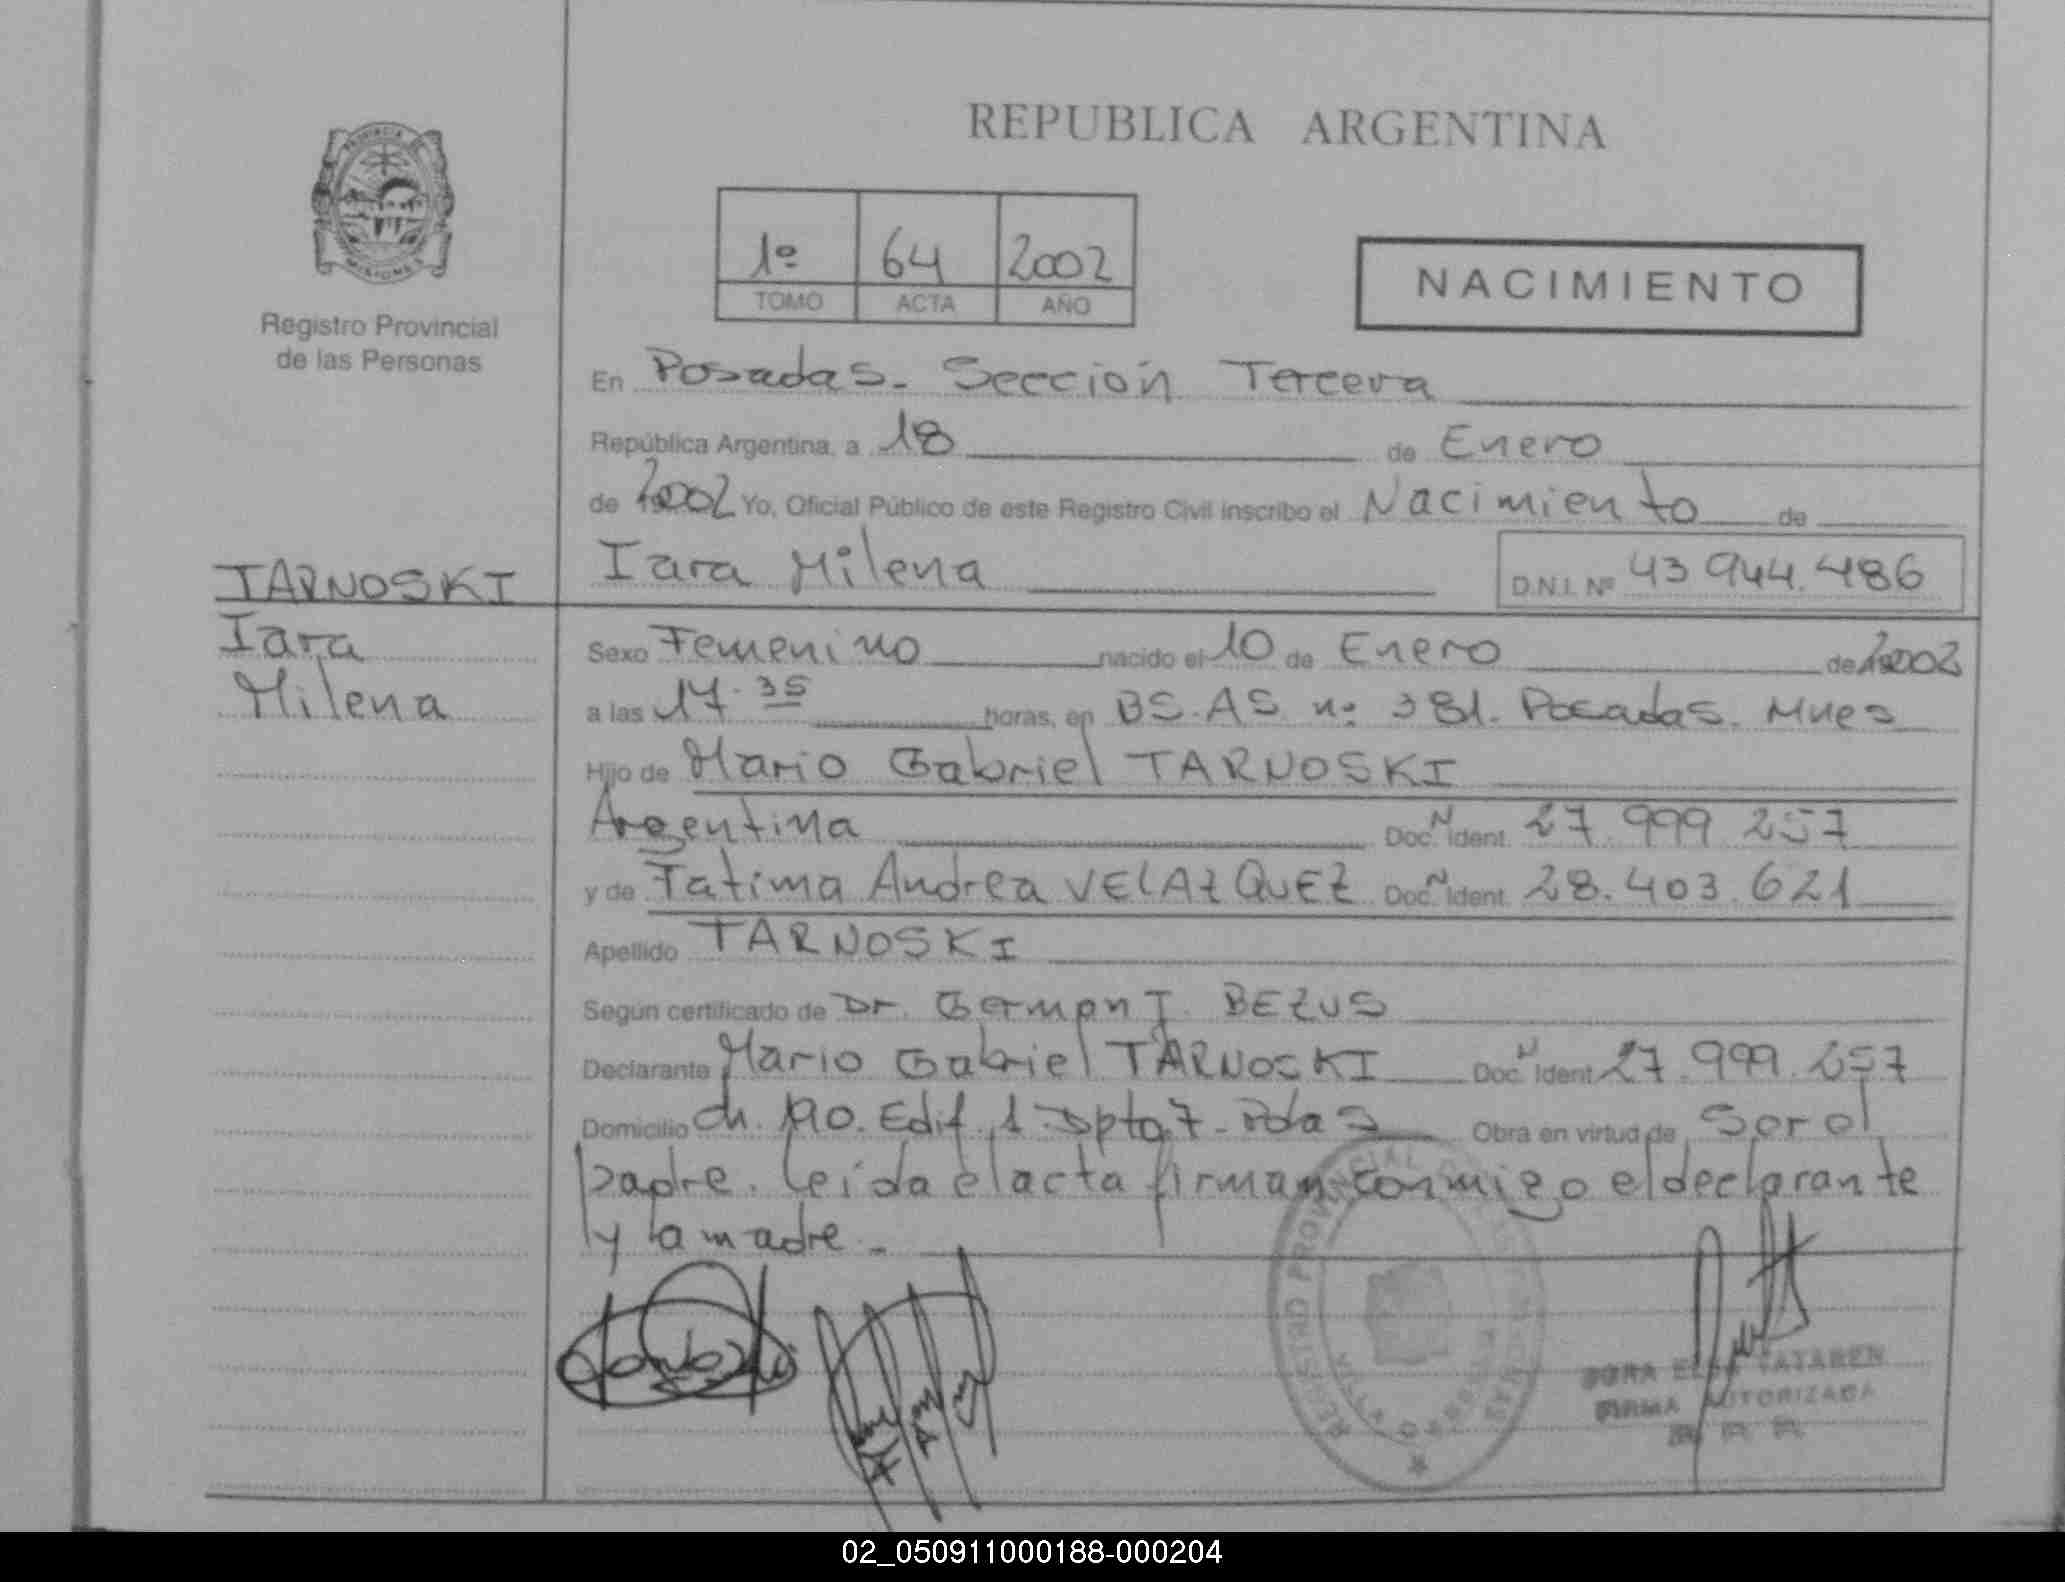 REPUBLICA ARGENTINA
PROVINCIA
MISIONES
Registro Provincial
de las Personas
1º 64 2002
TOMO ACTA AÑO
NACIMIENTO
En Posadas. Sección Tercera
República Argentina, a 18 de Enero
de 2002 Yo, Oficial Público de este Registro Civil inscribo el Nacimiento de
Iara Milena D.N.I. Nº 43 944.486
TARNOSKI
Iara
Milena
Sexo Femenino nacido el 10 de Enero de 2002
a las 17.35 horas, en BS.AS nº 381. Posadas. Mnes
Hijo de Mario Gabriel TARNOSKI
Argentina Doc. N Ident. 27.999.257
y de Fatima Andrea VELAZQUEZ Doc. N Ident. 28.403.621
Apellido TARNOSKI
Según certificado de Dr. German I. BEZUS
Declarante Mario Gabriel TARNOSKI Doc. N Ident. 27.999.257
Domicilio Ch. 190. Edif. 1 Dpto 7 - Pdas Obra en virtud de Ser el
padre. Leida el acta firman conmigo el declarante
y la madre.-
REGISTRO PROVINCIAL DE LAS PERSONAS
FIRMA AUTORIZADA
02_050911000188-000204